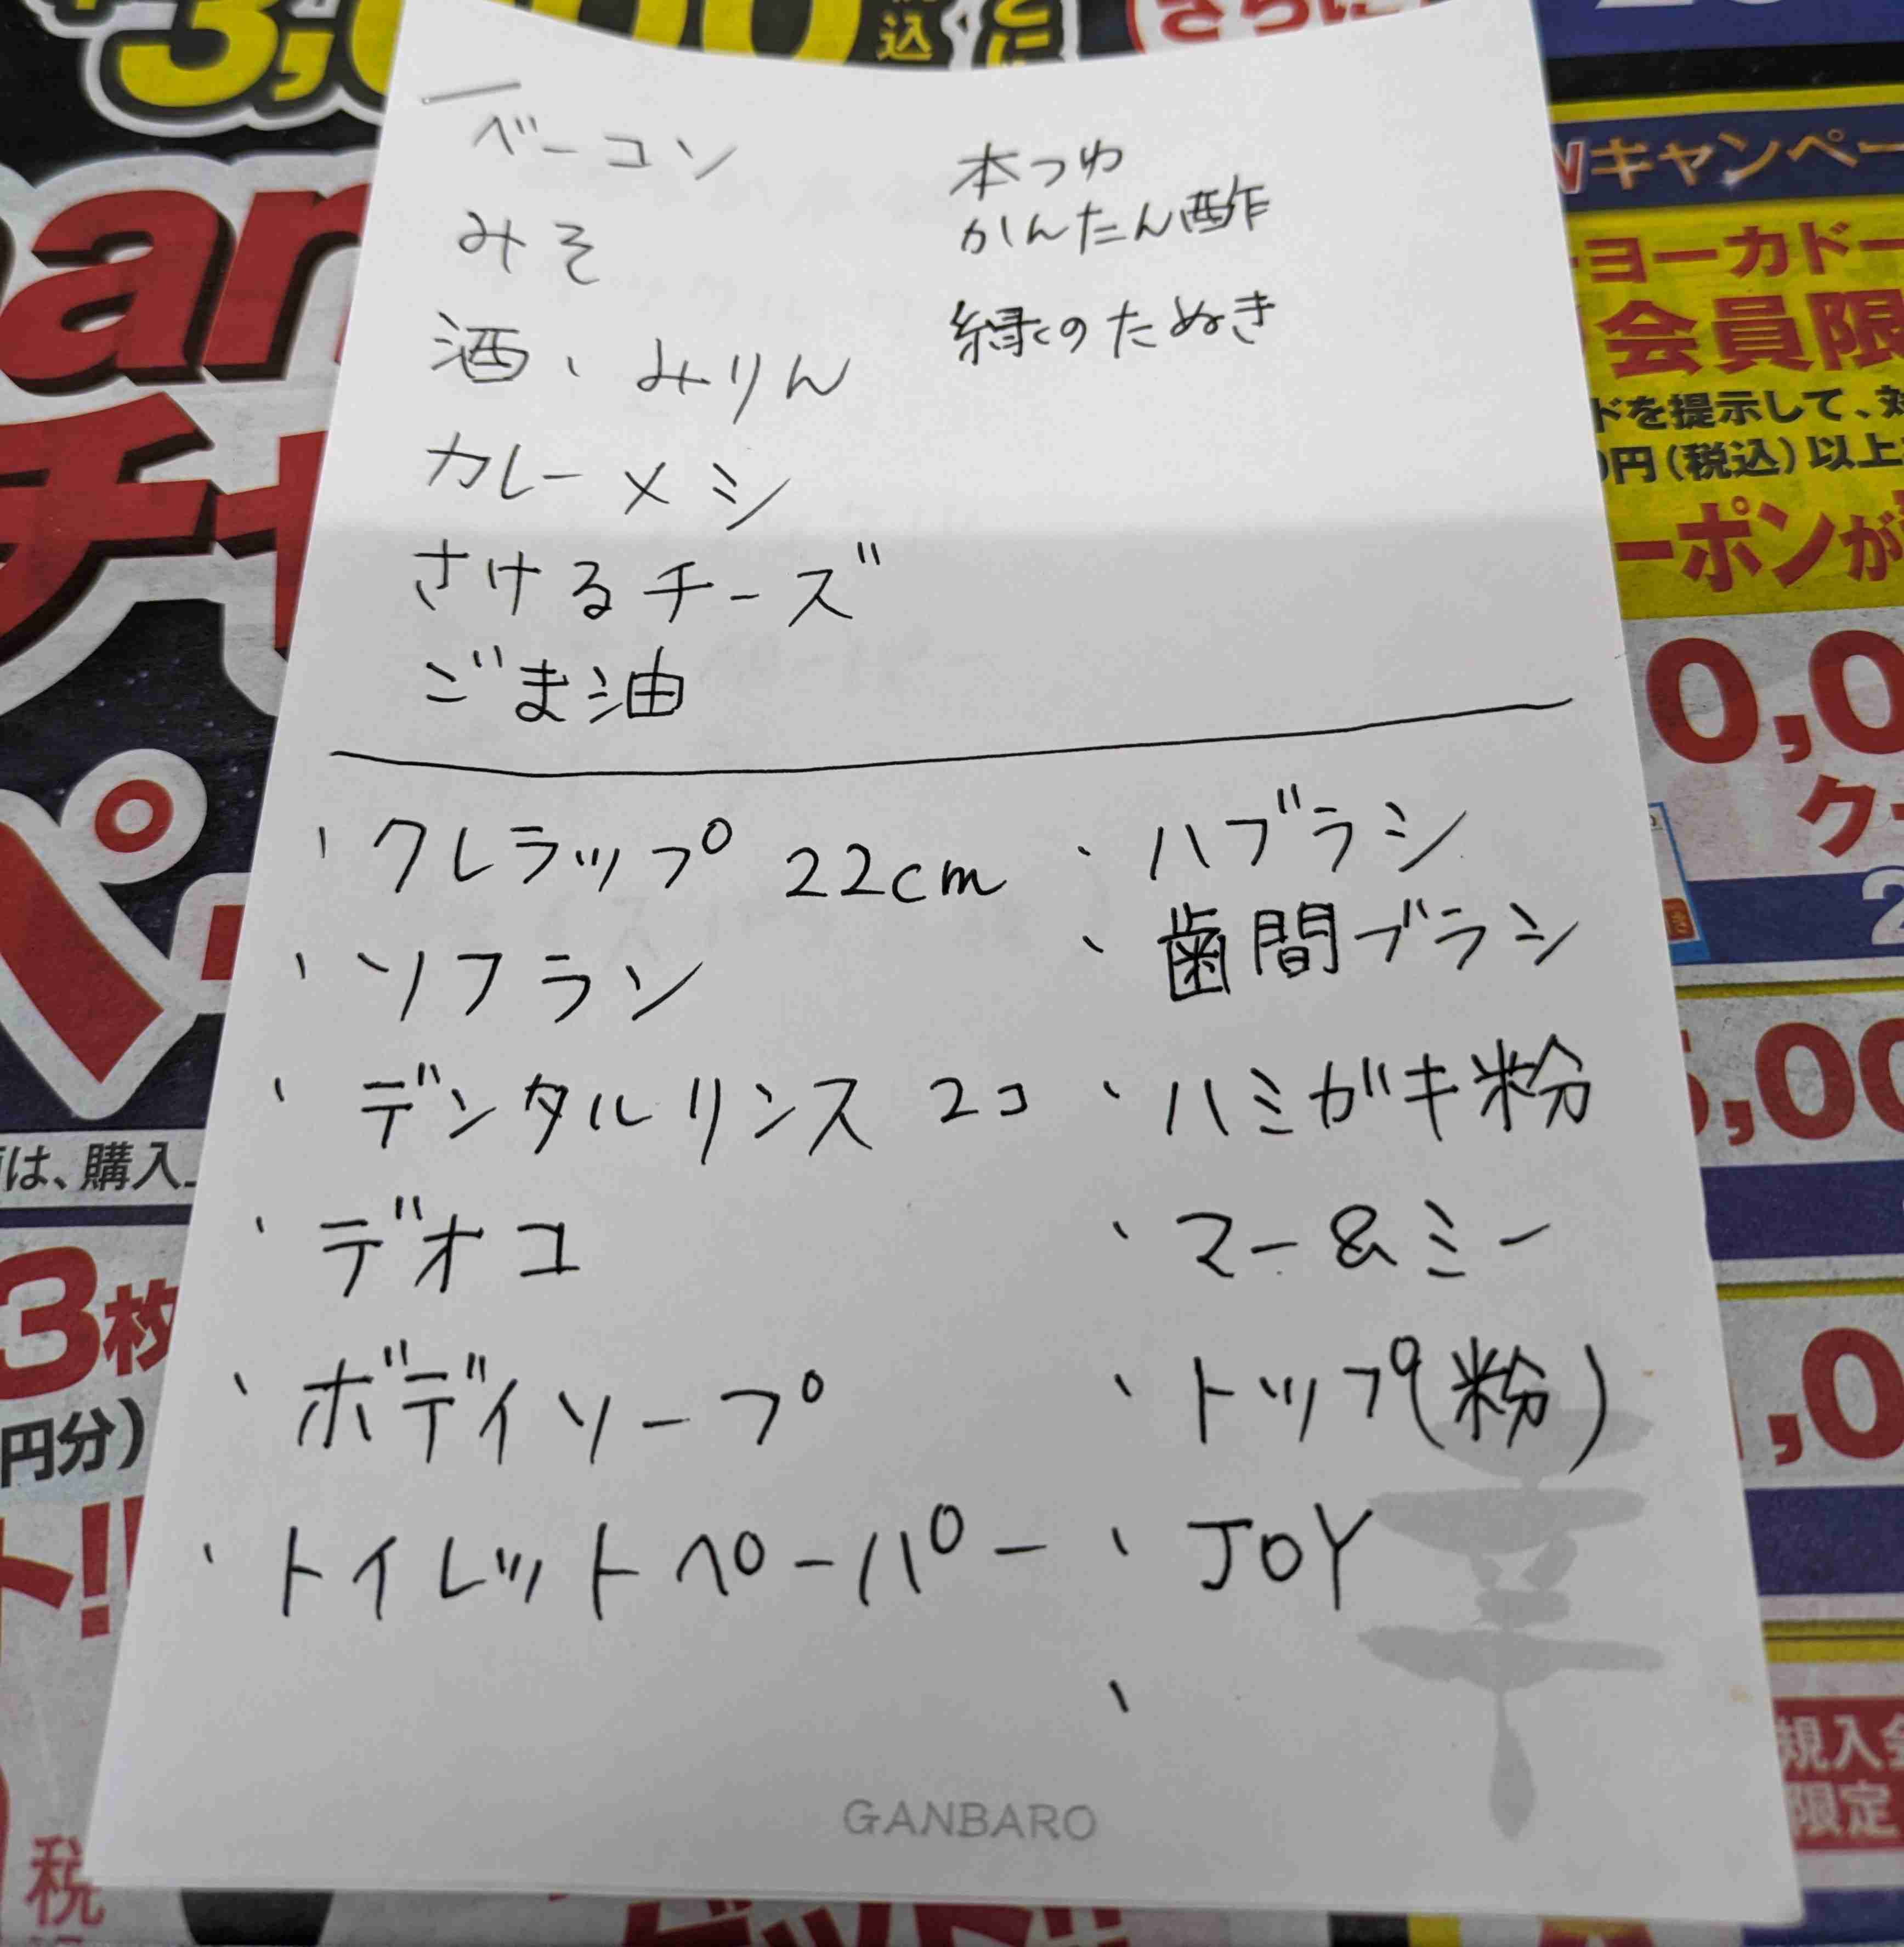 3,000
税込
さらに
ベーコン
みそ
酒、みりん
カレーメシ
さけるチーズ
ごま油
本つゆ
かんたん酢
緑のたぬき
、クレラップ 22cm
、ソフラン
、デンタルリンス 2コ
、デオコ
、ボディソープ
、トイレットペーパー
、ハブラシ
、歯間ブラシ
、ハミガキ粉
、マー&ミー
、トップ(粉)
、JOY
、
GANBARO
キャンペー
ヨーカドー
会員限
ドを提示して、対
円(税込)以上
ーポンが
0,0
ク
2
,00
,0
規入会
限定
チャ
ペ
は、購入
3枚
円分)
ト!!
税